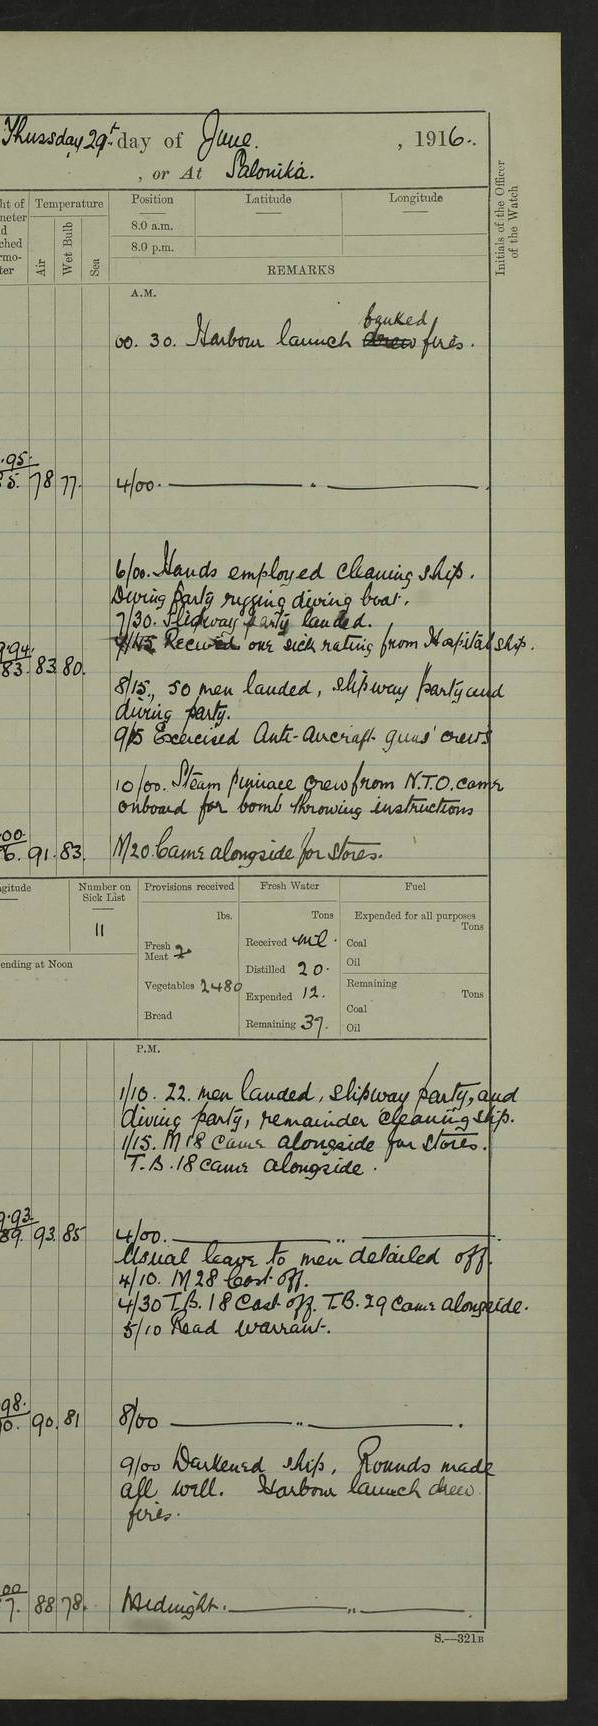 Thursday 29t day of June. , 1916.
, or At Salonika.
Initials of the Officer
of the Watch
Temperature
Air
Wet Bulb
Sea
Position
Latitude
Longitude
8.0 a.m.
8.0 p.m.
REMARKS
A.M.
banked
00. 30. Harbour launch drew fires.
.95.
5. 78 77.
4/00.
6/00. Hands employed cleaning ship.
Diving party rigging diving boat.
7/30. Slipway party landed.
7/45 Received one sick rating from Hospital ship.
9.94.
83. 83 80.
8/15, 50 men landed, slipway party and
diving party.
9/15 Exercised Anti-Aircraft guns' crews
10/00. Steam pinnace crew from N.T.O. came
onboard for bomb throwing instructions
00.
6. 91. 83.
M20. Came alongside for stores.
gitude
Number on
Sick List
11
ending at Noon
Provisions received
lbs.
Fresh
Meat
Vegetables 2480
Bread
Fresh Water
Tons
Received nil.
Distilled 20.
Expended 12.
Remaining 37.
Fuel
Expended for all purposes
Tons
Coal
Oil
Remaining
Tons
Coal
Oil
P.M.
1/10. 22. men landed, slipway party, and
diving party, remainder cleaning ship.
1/15. M18 came alongside for stores.
T.B. 18 came alongside.
9.93.
89. 93. 85
4/00.
Usual leave to men detailed off.
4/10. M28 Cast off.
4/30 T.B. 18 Cast off. T.B. 29 Came alongside.
5/10 Read Warrant.
98.
0. 90. 81
8/00
9/00 Darkened ship, Rounds made
all well. Harbour launch drew
fires.
00
7. 88 78.
Midnight.
S.—321B